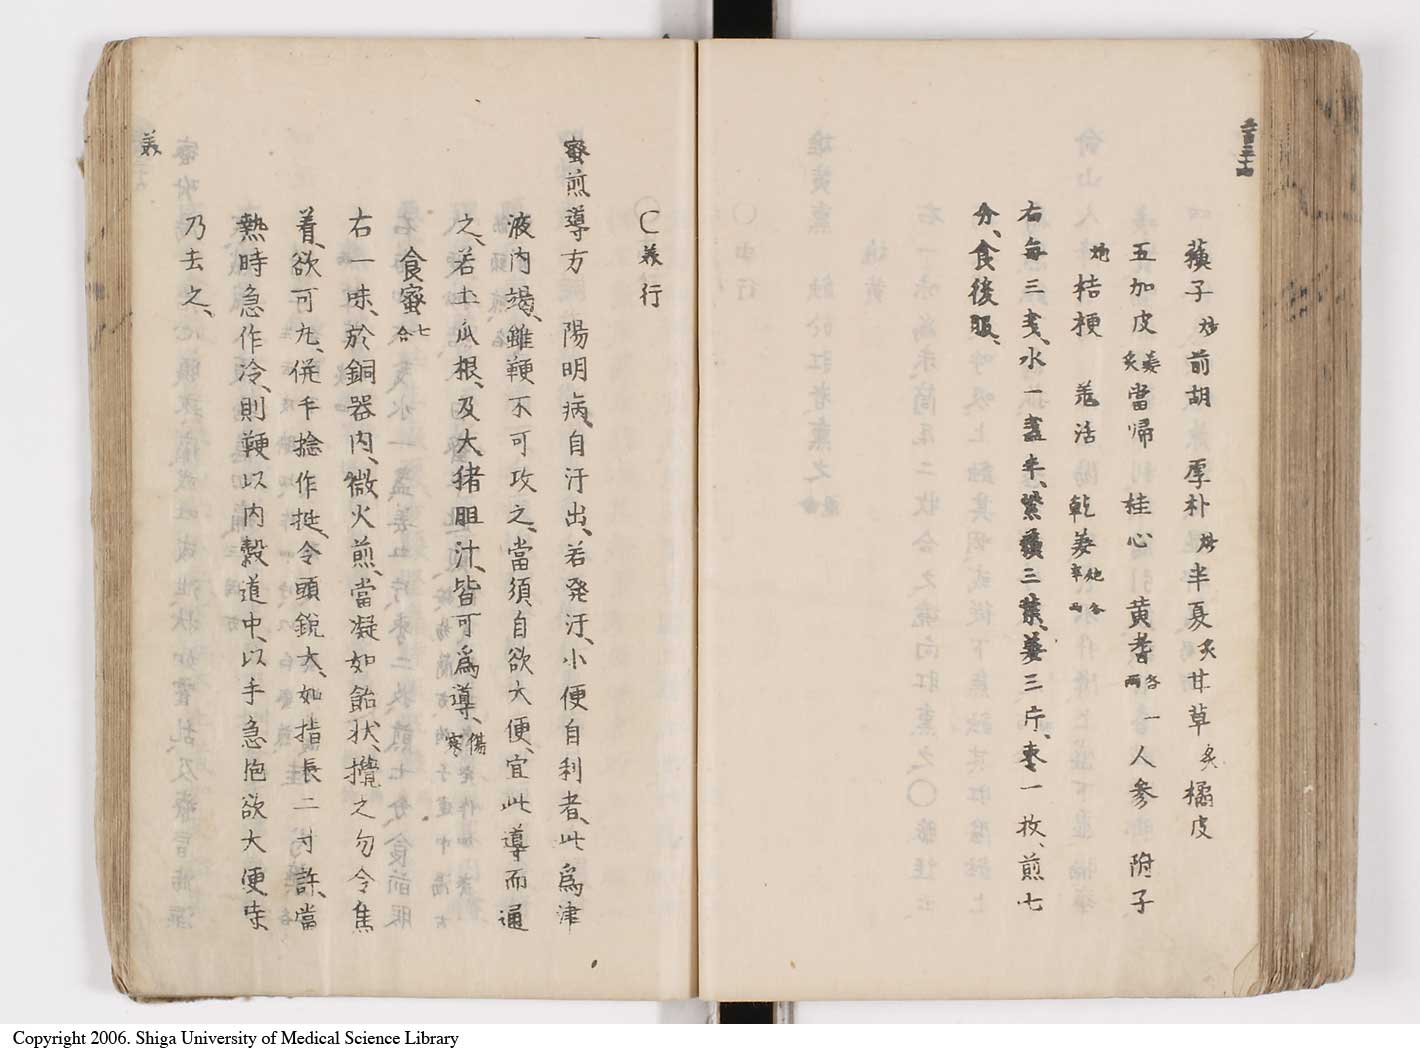 蘓子炒 前胡 厚朴炒 半夏炙 甘草炙 橘皮
五加皮姜炙 當帰 桂心 黄耆各一両 人參 附子
炮 桔梗 羗活 乾姜炮各半両
右毎三戔、水一盞半、紫蘓三葉、姜三片、枣一枚、煎七
分、食後服、
義行
蜜煎導方 陽明病、自汗出、若発汗、小便自利者、此爲津
液内竭、雖鞕不可攻之、當須自欲大便、宜此導而通
之、若土瓜根、及大猪胆汁、皆可爲導、傷寒
食蜜七合
右一味、於銅器内、微火煎、當凝如飴状、攪之勿令焦
着、欲可丸、併手捻作挺、令頭銳大、如指長二寸許、當
熱時急作冷、則鞕以内穀道中、以手急抱欲大便時、
乃去之、
義
Copyright 2006. Shiga University of Medical Science Library